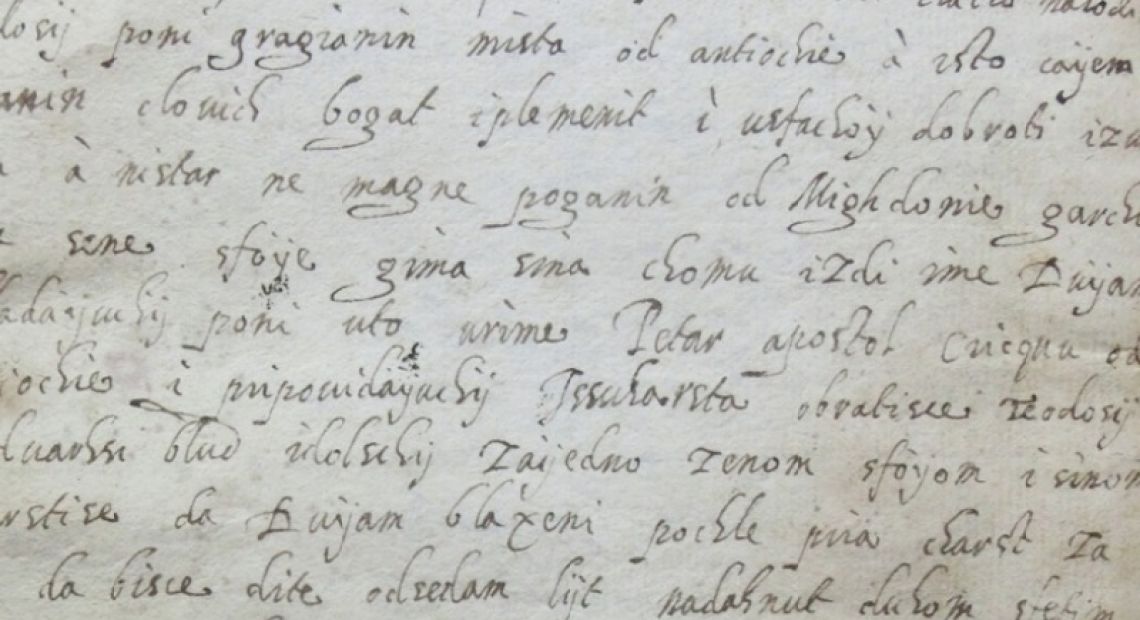 losij poni gragianin mista od antiochie à isto cayem
anin clovich bogat i plemenit i usfachoy dobroti iza
à nistar ne magne poganin od Mighdonie garch
szne sfoye gima sina chomu izdi ime Duyam
adayuchij poni uto vrime Petar apostol Cricqvu od
iochie i pripovidayuchij Issukarsta obratisce Teodosij
duarhsi blud idolschij zaijedno zenom sfoyom i sinom
rstise da Duyam blaxeni pochle pria charst za
da bisce dite odsedam lijt nadahnut duhom stetim